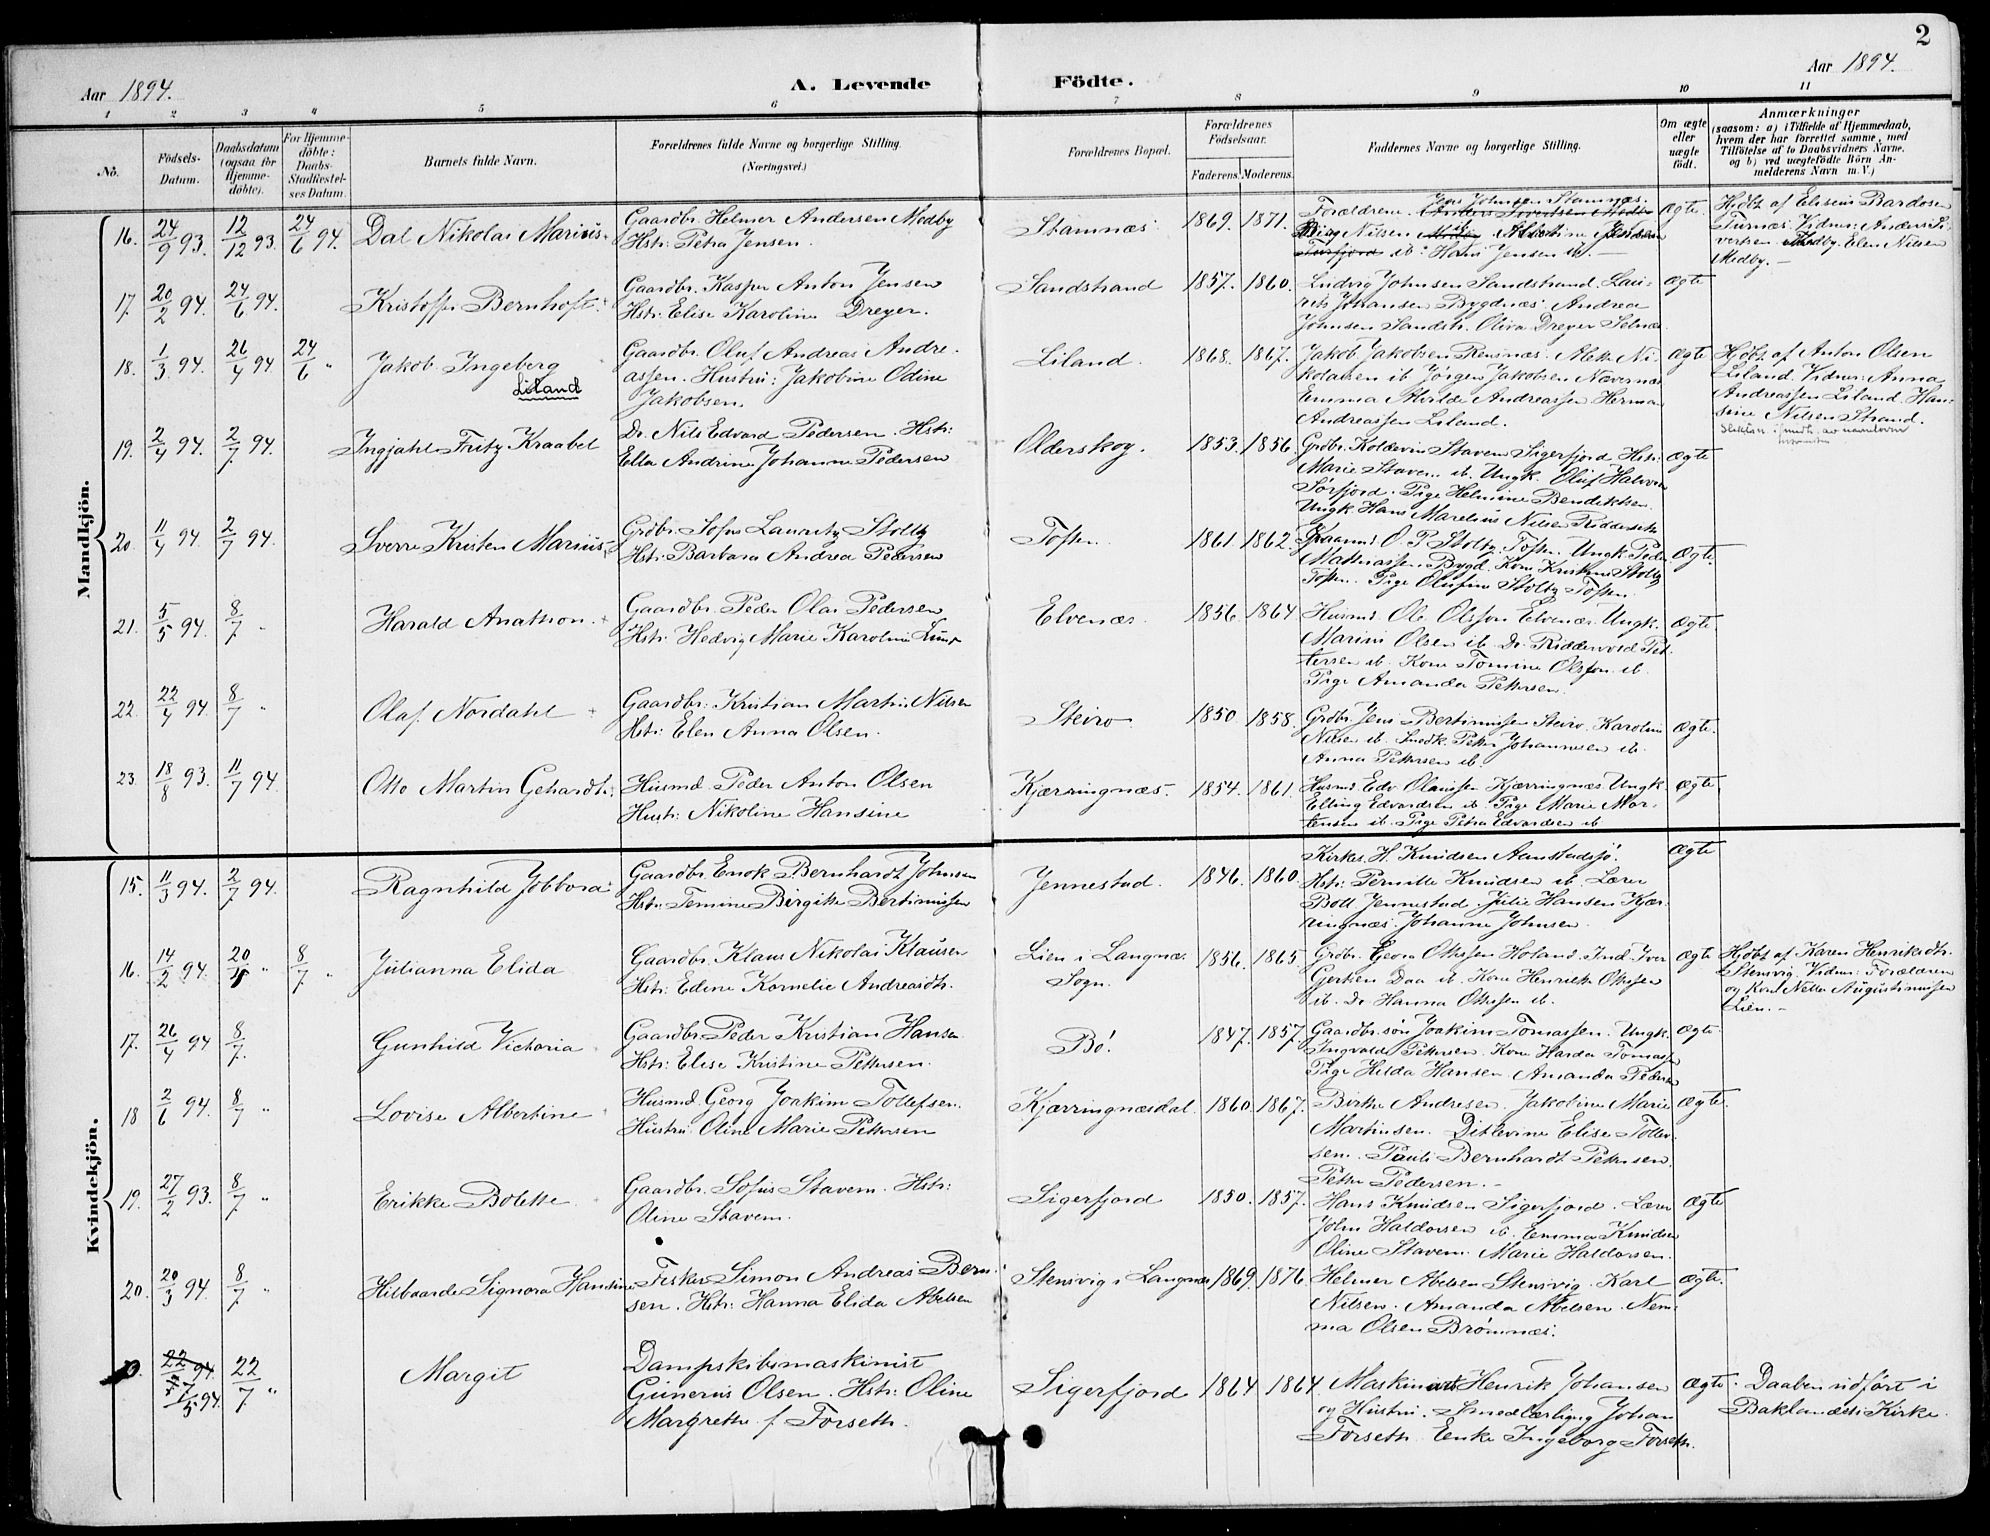 2
Aar 1894.
A. Levende Födte.
Aar 1894.
1 2 3 4 5 6 7 8 9 10 11
No.
Födsels-Datum.
Daabsdatum (ogsaa for Hjemmedöbte).
For Hjemmedöbte: Daabs-Stadfæstelses Datum.
Barnets fulde Navn.
Forældrenes fulde Navne og borgerlige Stilling.
(Næringsvei.)
Forældrenes Bopæl.
Forældrenes Fødselsaar.
Faderens. Moderens.
Faddernes Navne og borgerlige Stilling.
Om ægte eller uægte födt.
Anmærkninger
(saasom: a) i Tilfælde af Hjemmedaab, hvem der har forrettet samme, med Tilföielse af to Daabsvidners Navne, og b) ved uægtefödte Börn Anmelderens Navn m. V.)
Mandkjön.
16. 24/9 93. 12/12 93. 24/6 94. Dal Nikolai Marius
Gaardbr. Helmer Andersen Medby
Hstr: Petra Jensen.
Stamnæs 1869. 1871.
Forældrene. Jens Johnsen Stamnæs.
Nilsen
ib. Hans Jensen ib.
Ægte.
Hjdbt af Eliseus Bardosen
Turnæs. Vidner: Anders Sivertsen Medby. Elen Nilsen
Medby.
17. 20/2 94. 24/6 94. Kristoffer Bernhoft
Gaardbr. Kasper Anton Jensen
Hstr: Elise Karoline Dreyer.
Sandstrand 1857. 1860.
Ludvig Johnsen Sandstrand. Laurits Johansen Bygdnæs. Andrea
Johnsen Sandstr. Oliva Dreyer Selnæs
Ægte
18. 1/3 94. 26/4 94 24/6 " Jakob Ingeberg
Liland
Gaardbr. Oluf Andreas Andreassen. Hustru: Jakobine Odine
Jakobsen.
Liland. 1868. 1867.
Jakob Jakobsen Rensnæs. Nikolaisen ib. Jørgen Jakobsen Nævernæs
Emma Andreassen Herman
Andreassen Liland.
Ægte
Hjdbt. af Anton Olsen
Liland. Vidner: Anna
Andreassen Liland. Hansine Nilsen Strand.
19. 2/4 94. 2/7 94. Ingjahl Fritz Kraabel
Do. Nils Edvard Pedersen. Hstr:
Ella Andrine Johanne Pedersen
Olderskog. 1853. 1856.
Grdbr. Koldevin Stavem Sigerfjord. Hstr:
Marie Stavem ib. Ungk. Oluf Halvorsen
Sørfjord. Pige Helmine Bendiktsen
Ungk Hans Marelius Nilsen
Ægte
20. 11/4 94. 2/7 94. Sverre Kristen Marius
Grdbr. Sofus Lauritz Stoltz
Hstr: Barbara Andrea Pedersen
Toften. 1861. 1862.
O. P. Stoltz. Toften. Ungk. Peder
Mathiassen Bygd. Kone Stoltz
Toften. Pige Olufine Stoltz Toften.
Ægte.
21. 5/5 94. 8/7 " Harald Anathon
Gaardbr. Peder Olai Pedersen
Hstr: Hedvig Marie Karoline
Elvenæs. 1856 1864
Husmd. Ole Olsson Elvenæs. Ungk.
Marius Olsen ib. Do. Riddervold Pettersen ib. Kone Tomine Olsson ib.
Pige Amanda Pettersen.
Ægte.
22. 22/4 94. 8/7 " Olaf Nordahl
Gaardbr: Kristian Martin Nilsen
Hstr: Elen Anna Olsen.
Steiro. 1850. 1858.
Grdbr. Jens Bertinussen Steiro. Karoline
Nilsen ib. Snedk. Petter Johannesen ib.
Anna Pettersen ib.
Ægte.
23. 18/8 93. 11/7 94. Otto Martin Gehardt
Husmd. Peder Anton Olsen
Hustr: Nikoline Hansine
Kjærringnæs. 1854. 1861.
Husmd. Edv. Olaussen Kjærringnæs. Ungk.
Elling Edvardsen ib. Pige Marie Mortensen ib. Pige Petra Edvardsen ib.
Ægte
Kvindekjön.
15. 11/3 94. 2/7 94. Ragnhild Jobbora
Gaardbr. Enok Bernhardt Johnsen
Hstr: Temine Birgitte Bertinussen
Jennestad. 1846. 1860.
Kirkes. H. Knudsen Aanstadsjø.
Hstr: Pernille Knudsen ib. Lærer
Boll Jennestad. Julie Hansen Kjærringnæs. Johanne Johnsen.
Ægte
16. 14/2 94. 20/5 " 8/7 " Julianna Elida
Gaardbr. Klaus Nikolai Klausen
Hstr: Edine Kornelie Andreasdtr.
Lien i Langnæs
Sogn. 1856. 1865
Grdbr. Georg Ottesen Holand. Ind. Iver
Gerken Daa ib. Kone Henrikke Ottesen
ib. Do Hanna Ottesen ib.
Ægte
Hjdbt af Karen Henriksdtr.
Stensvig. Vidner: Forældrene
og Kone Nella Augustinussen
Lien.
17. 26/4 94 8/7. Gunhild Victoria
Gaardbr. Peder Kristian Hansen
Hstr: Elise Kristine Pettersen.
Bø. 1847. 1857.
Gaardbr.søn Joakim Tomassen. Ungk.
Ingvald Pettersen. Kone Harda Tomassen
Pige Hilda Hansen. Amanda Pedersen
Ægte.
18 2/6 94. 8/7 " Lovise Albertine
Husmd. Georg Joakim Tollefsen.
Hustru Oline Marie Pettersen
Kjærringnæsdal. 1860. 1867.
Birthe Andresen. Jakobine Marie
Martinsen. Ditlevine Elise Tollevsen. Pauli Bernhardt Pettersen.
Petter Pedersen.
Ægte.
19. 27/2 93. 8/7 " Erikke Bolette
Gaardbr. Sofus Stavem. Hstr:
Oline Stavem.
Sigerfjord 1850. 1857.
Hans Knudsen Sigerfjord. Lærer
John Haldorsen ib. Emma Knudsen
Oline Stavem. Marie Haldorsen.
Ægte
20. 20/3 94. 8/7 " Hilbaarde Signora Hansine
Fisker Simon Andreas Bernsen. Hstr: Hanna Elida Abelsen
Stensvig i Langnæs 1869. 1876.
Helmer Abelsen Stensvig. Karl
Nilsen. Amanda Abelsen. Nemma Olsen Brømnæs.
Ægte.
22 94. 1/5 94. 22/7 " Margit
Dampskibsmaskinist
Gunerius Olsen. Hstr: Oline
Margrethe f. Forseth.
Sigerfjord 1864 1864.
Maskinist Henrik Johansen
og Hustru. Smedlærling Johan
Forseth. Enke Ingeborg Forseth.
Ægte.
Daaben udført i
Baklandets Kirke.